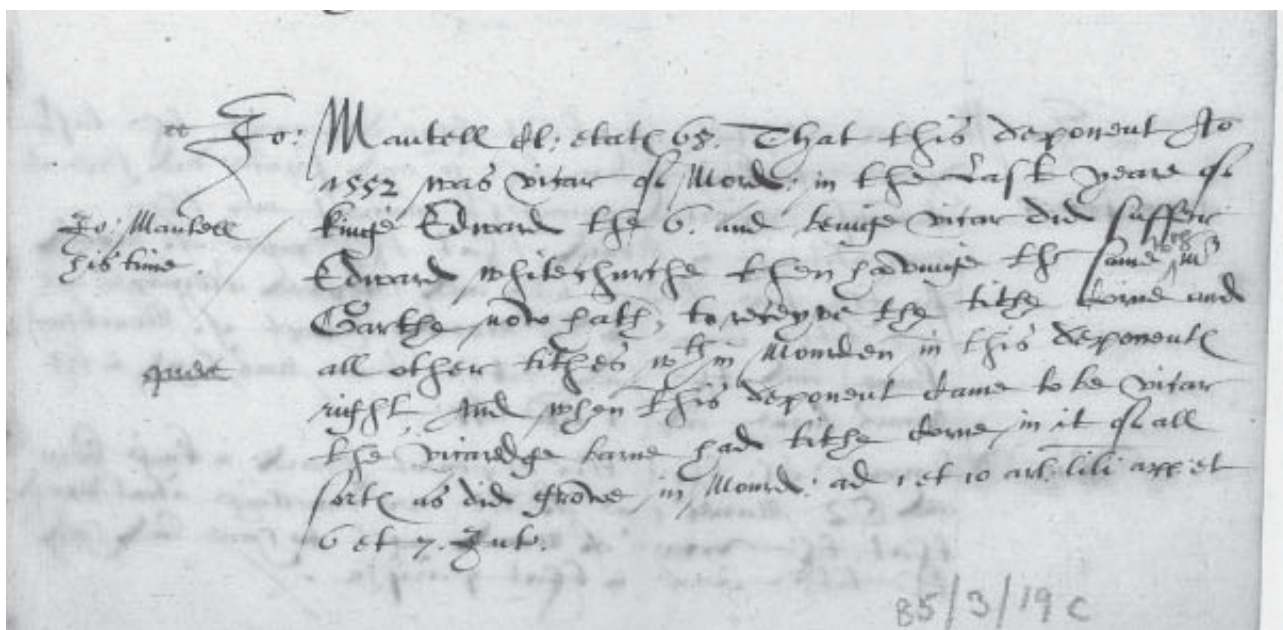 Jo: Mantell cl: etatis 68. That this deponent Ao
1552 was vicar of Mord: in the Last yeare of
Jo: Mantell
his time.
kinge Edward the 6. and beinge vicar did suffer
Edward whitchurche then havinge the same wch Mr
Garthe now hath, to receyve the tithe Corne and
quere
all other tithes wthin Mourden in this deponents
right, And when this deponent Came to be vicar
the vicaredge barne had tithe Corne in it of all
sorts as did growe in Mourd: ad 1 et 10 art: lili app: et
6 et 7. Int.
85/3/19 c